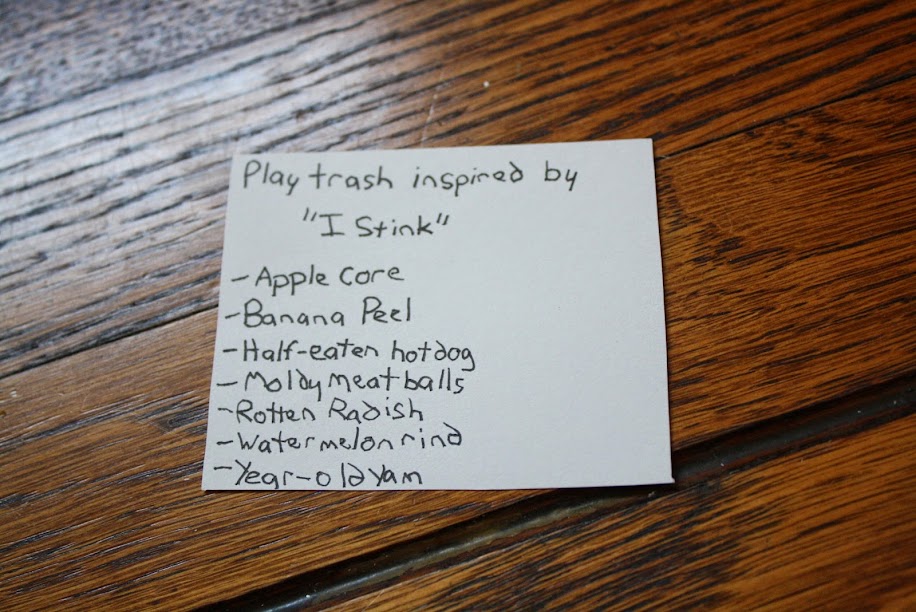 Play trash inspired by
"I Stink"
- Apple Core
- Banana Peel
- Half-eaten hotdog
- Moldy meatballs
- Rotten Radish
- Watermelon rind
- Year-old yam